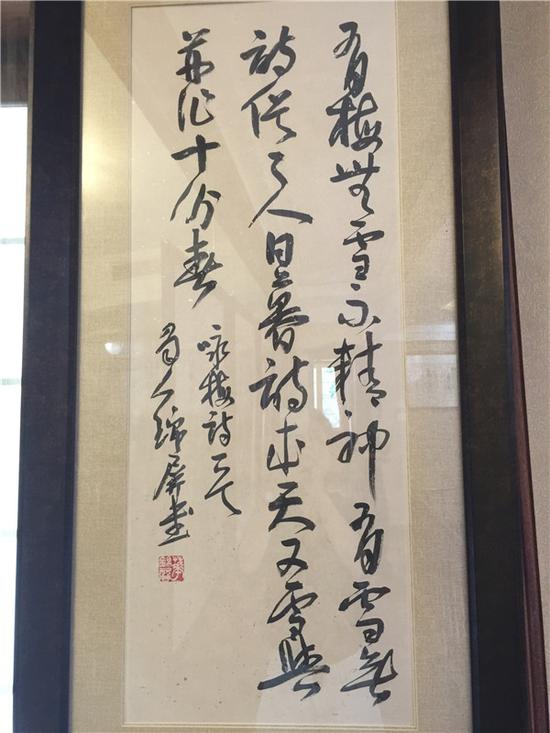 有梅無雪不精神有雪無
詩俗了人日暮詩成天又雪與
并作十分春
咏梅詩一首
蜀人錦屏書